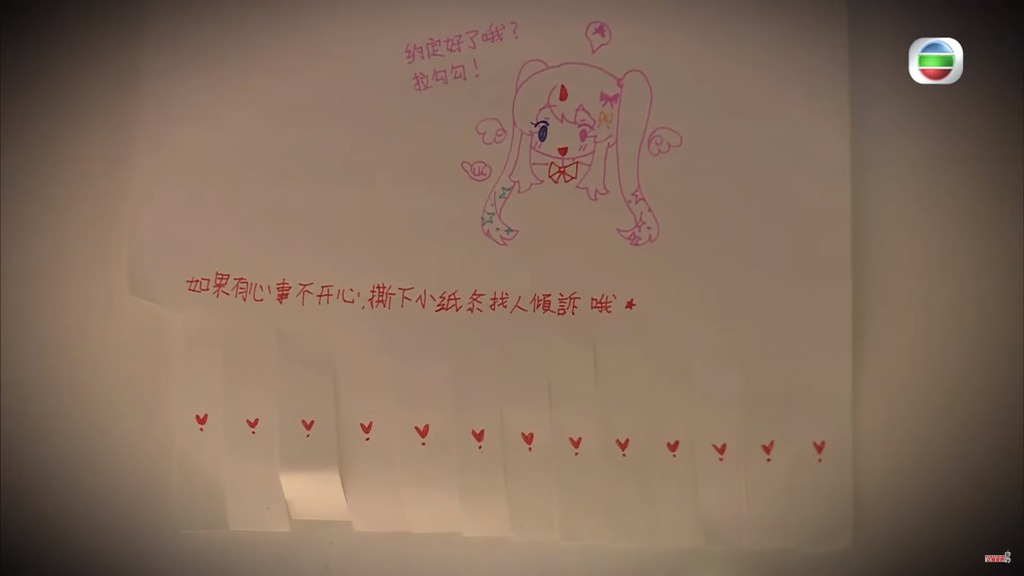 约定好了哦?
拉勾勾!
如果有心事不开心,撕下小纸条找人倾訴 哦★